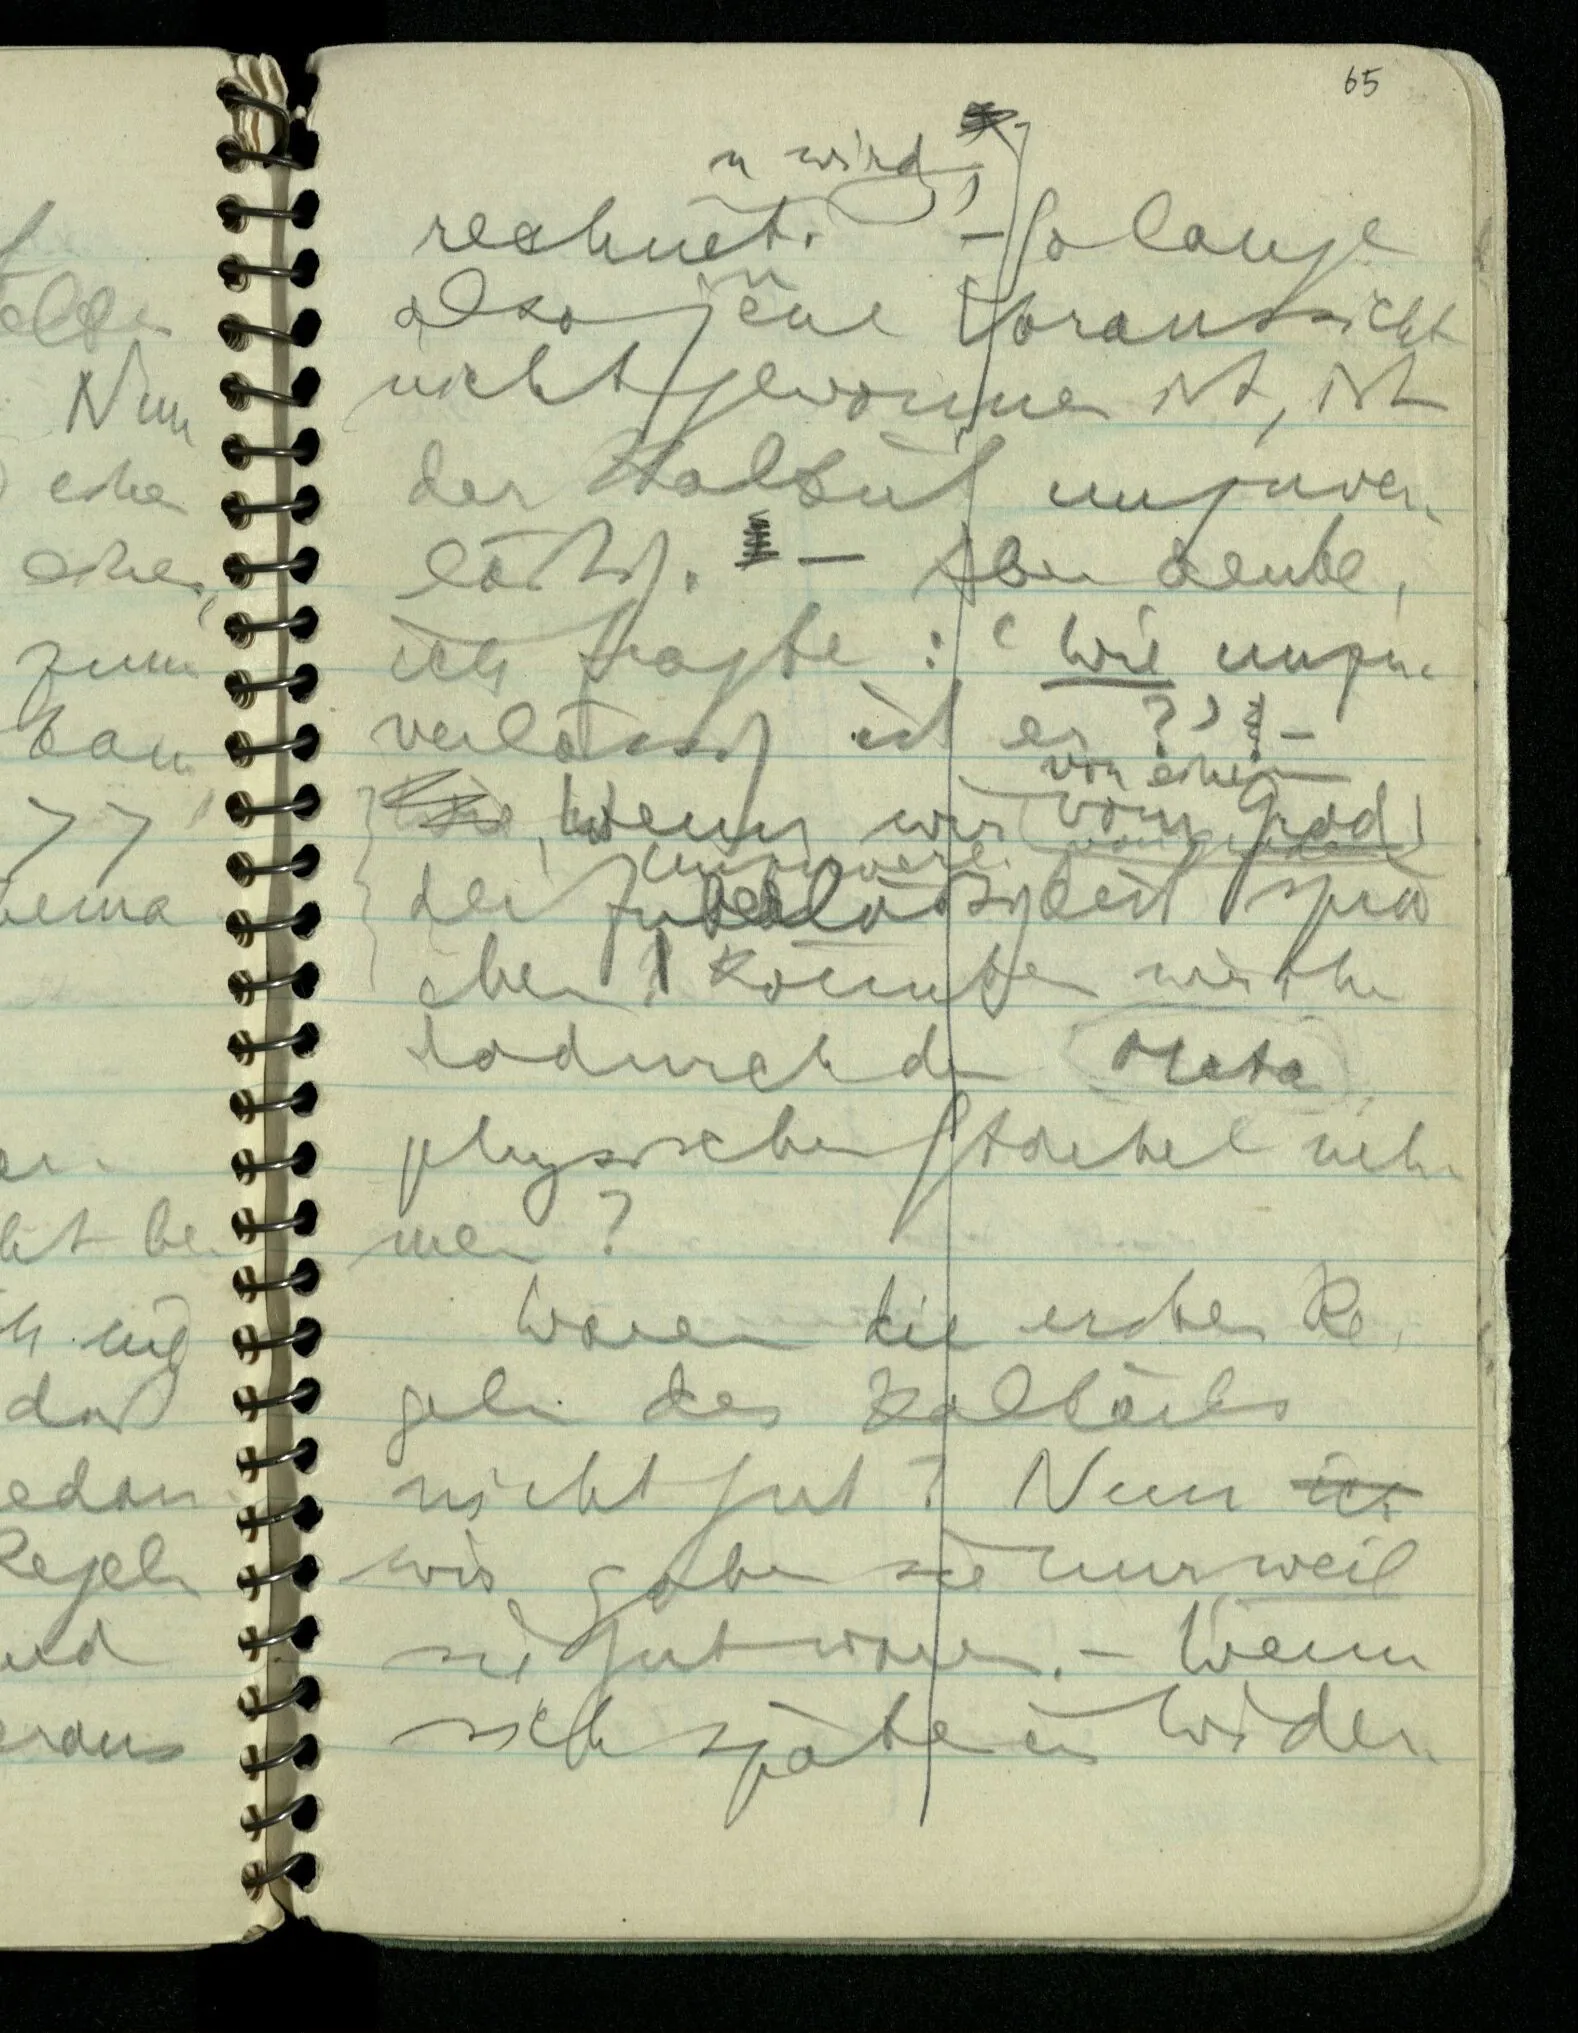 65
u wird
rechnet. – Solange
also jene Voraussicht
nicht gewonnen ist, ist
der Kalkül unzuver-
lässig. – Aber denke,
ich fragte: ‘Wie unzu-
verlässig ist er?’ –
von einem
Wenn wir vom Grad
unzuverl
der Zuverlässigkeit sprä
chen, könnten wir ihr
dadurch den Meta-
physischen Stachel neh-
men?
Waren die ersten Re-
geln des Kalküls
nicht gut? Nun
wir gaben sie nur weil
sie gut waren. – Wenn
sich später ein Wider-
Nun
eine
einen,
zum
kann
>>
hema
ht be-
daß
Regeln
und
eraus